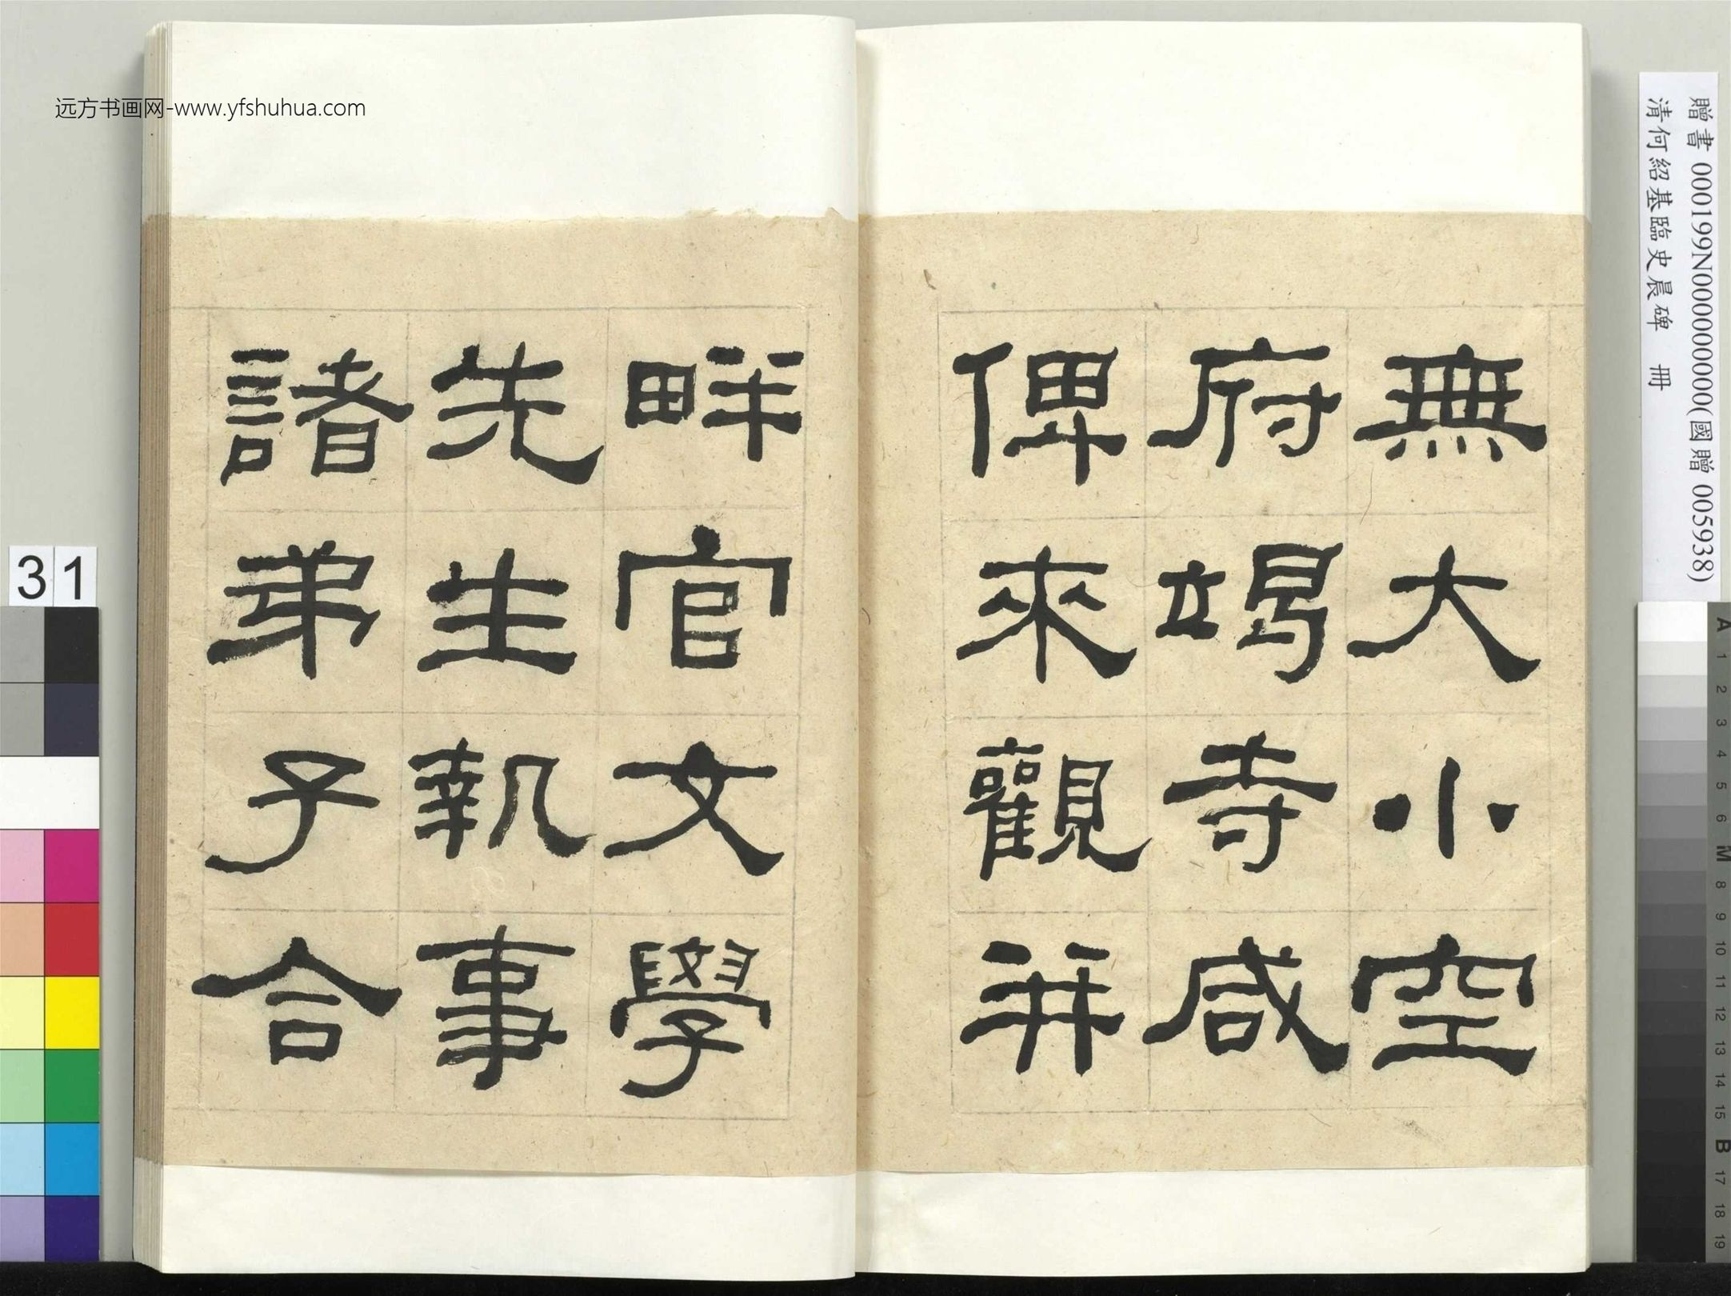 远方书画网-www.yfshuhua.com
無大小空
府竭寺咸
俾來觀并
畔官文學
先生執事
諸弟子合
31
贈書 000199N000000000(國贈 005938)
清何紹基臨史晨碑 冊
A
1
2
3
4
5
6
M
8
9
10
11
12
13
14
15
B
17
18
19